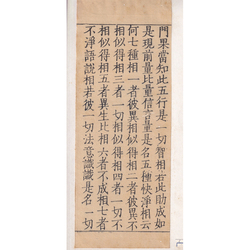 門果當知此五行是一切智相若此助成如
是現前量比量信言量是名五種快淨相云
何七種相一者彼異相似得相二者彼異不
相似得相三者一切相似得相四者一切不
相似得相五者異生比相六者不成相七者
不淨語說相若彼一切法意識識是名一切